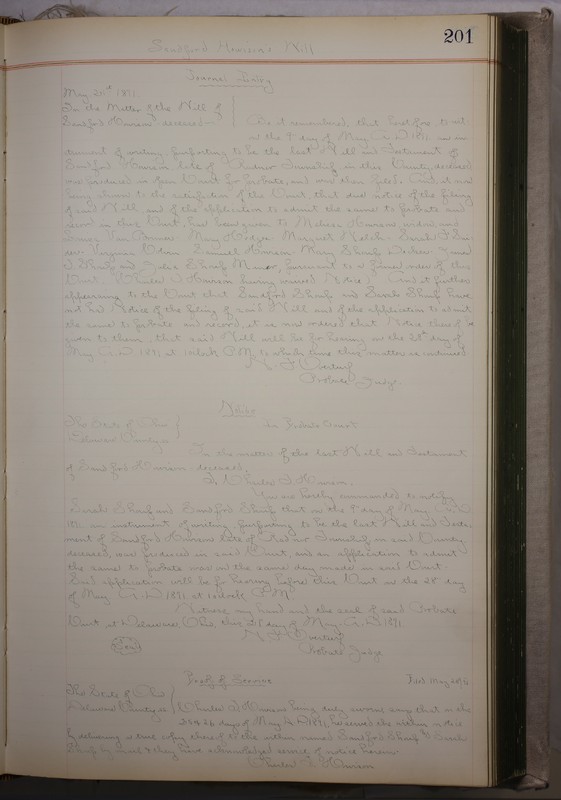 201
Sandford Harrison's Will
Journal Entry
May 25th 1891
In the Matter of the Will of
Sandford Harrison deceased
Be it remembered, that heretofore to wit
on the 9 day of May A.D. 1891 an in-
strument of writing, purporting to be the last Will and Testament of
Sandford Harrison, late of Radnor Township in this County, deceased
was produced in open Court for probate, and was then filed. And it now
being shown to the satisfaction of the Court, that due notice of the filing
of said Will, and of the application to admit the same to probate and
record in this Court, had been given to Harrison, widow and
Mary Hodges Margaret Sarah J.
Virginia Samuel Harrison Mary Sharp
J. Sharp and Sharp Minor, pursuant to a former order of this
Court. Charles D Harrison having waived Notice. And it further
appearing to the Court that Sandford Sharp and Sarah Sharp have
not had Notice of the filing of said Will and of the application to admit
the same to probate and record, it is now ordered that Notice thereof be
given to them, that said Will will be for hearing on the 28th day of
May A.D. 1891 at 1 o'clock P.M. to which time this matter is continued
Probate Judge
Notice
The State of Ohio
Delaware County ss
In Probate Court
In the matter of the last Will and Testament
of Sandford Harrison deceased.
To Charles D Harrison.
You are hereby commanded to notify
Sarah Sharp and Sandford Sharp that on the 9 day of May A.D.
1891 an instrument of writing purporting to be the last Will and Testa-
ment of Sandford Harrison late of Radnor Township in said County
deceased, was produced in said Court, and an application to admit
the same to probate was on the same day made in said Court.
Said application will be for hearing before this Court on the 28 day
of May A.D. 1891 at 1 o'clock P.M.
Witness my hand and the seal of said Probate
Court, at Delaware Ohio, this 25 day of May A.D. 1891
Seal
Probate Judge
Proof of Service
Filed May
The State of Ohio
Delaware County ss
Charles D Harrison being duly sworn says that on the
25 & 26 days of May A.D. 1891, he served the within notice
by delivering a true copy thereof to the within named Sandford Sharp & Sarah
Sharp by mail & they have acknowledged service of notice herein
Charles D Harrison